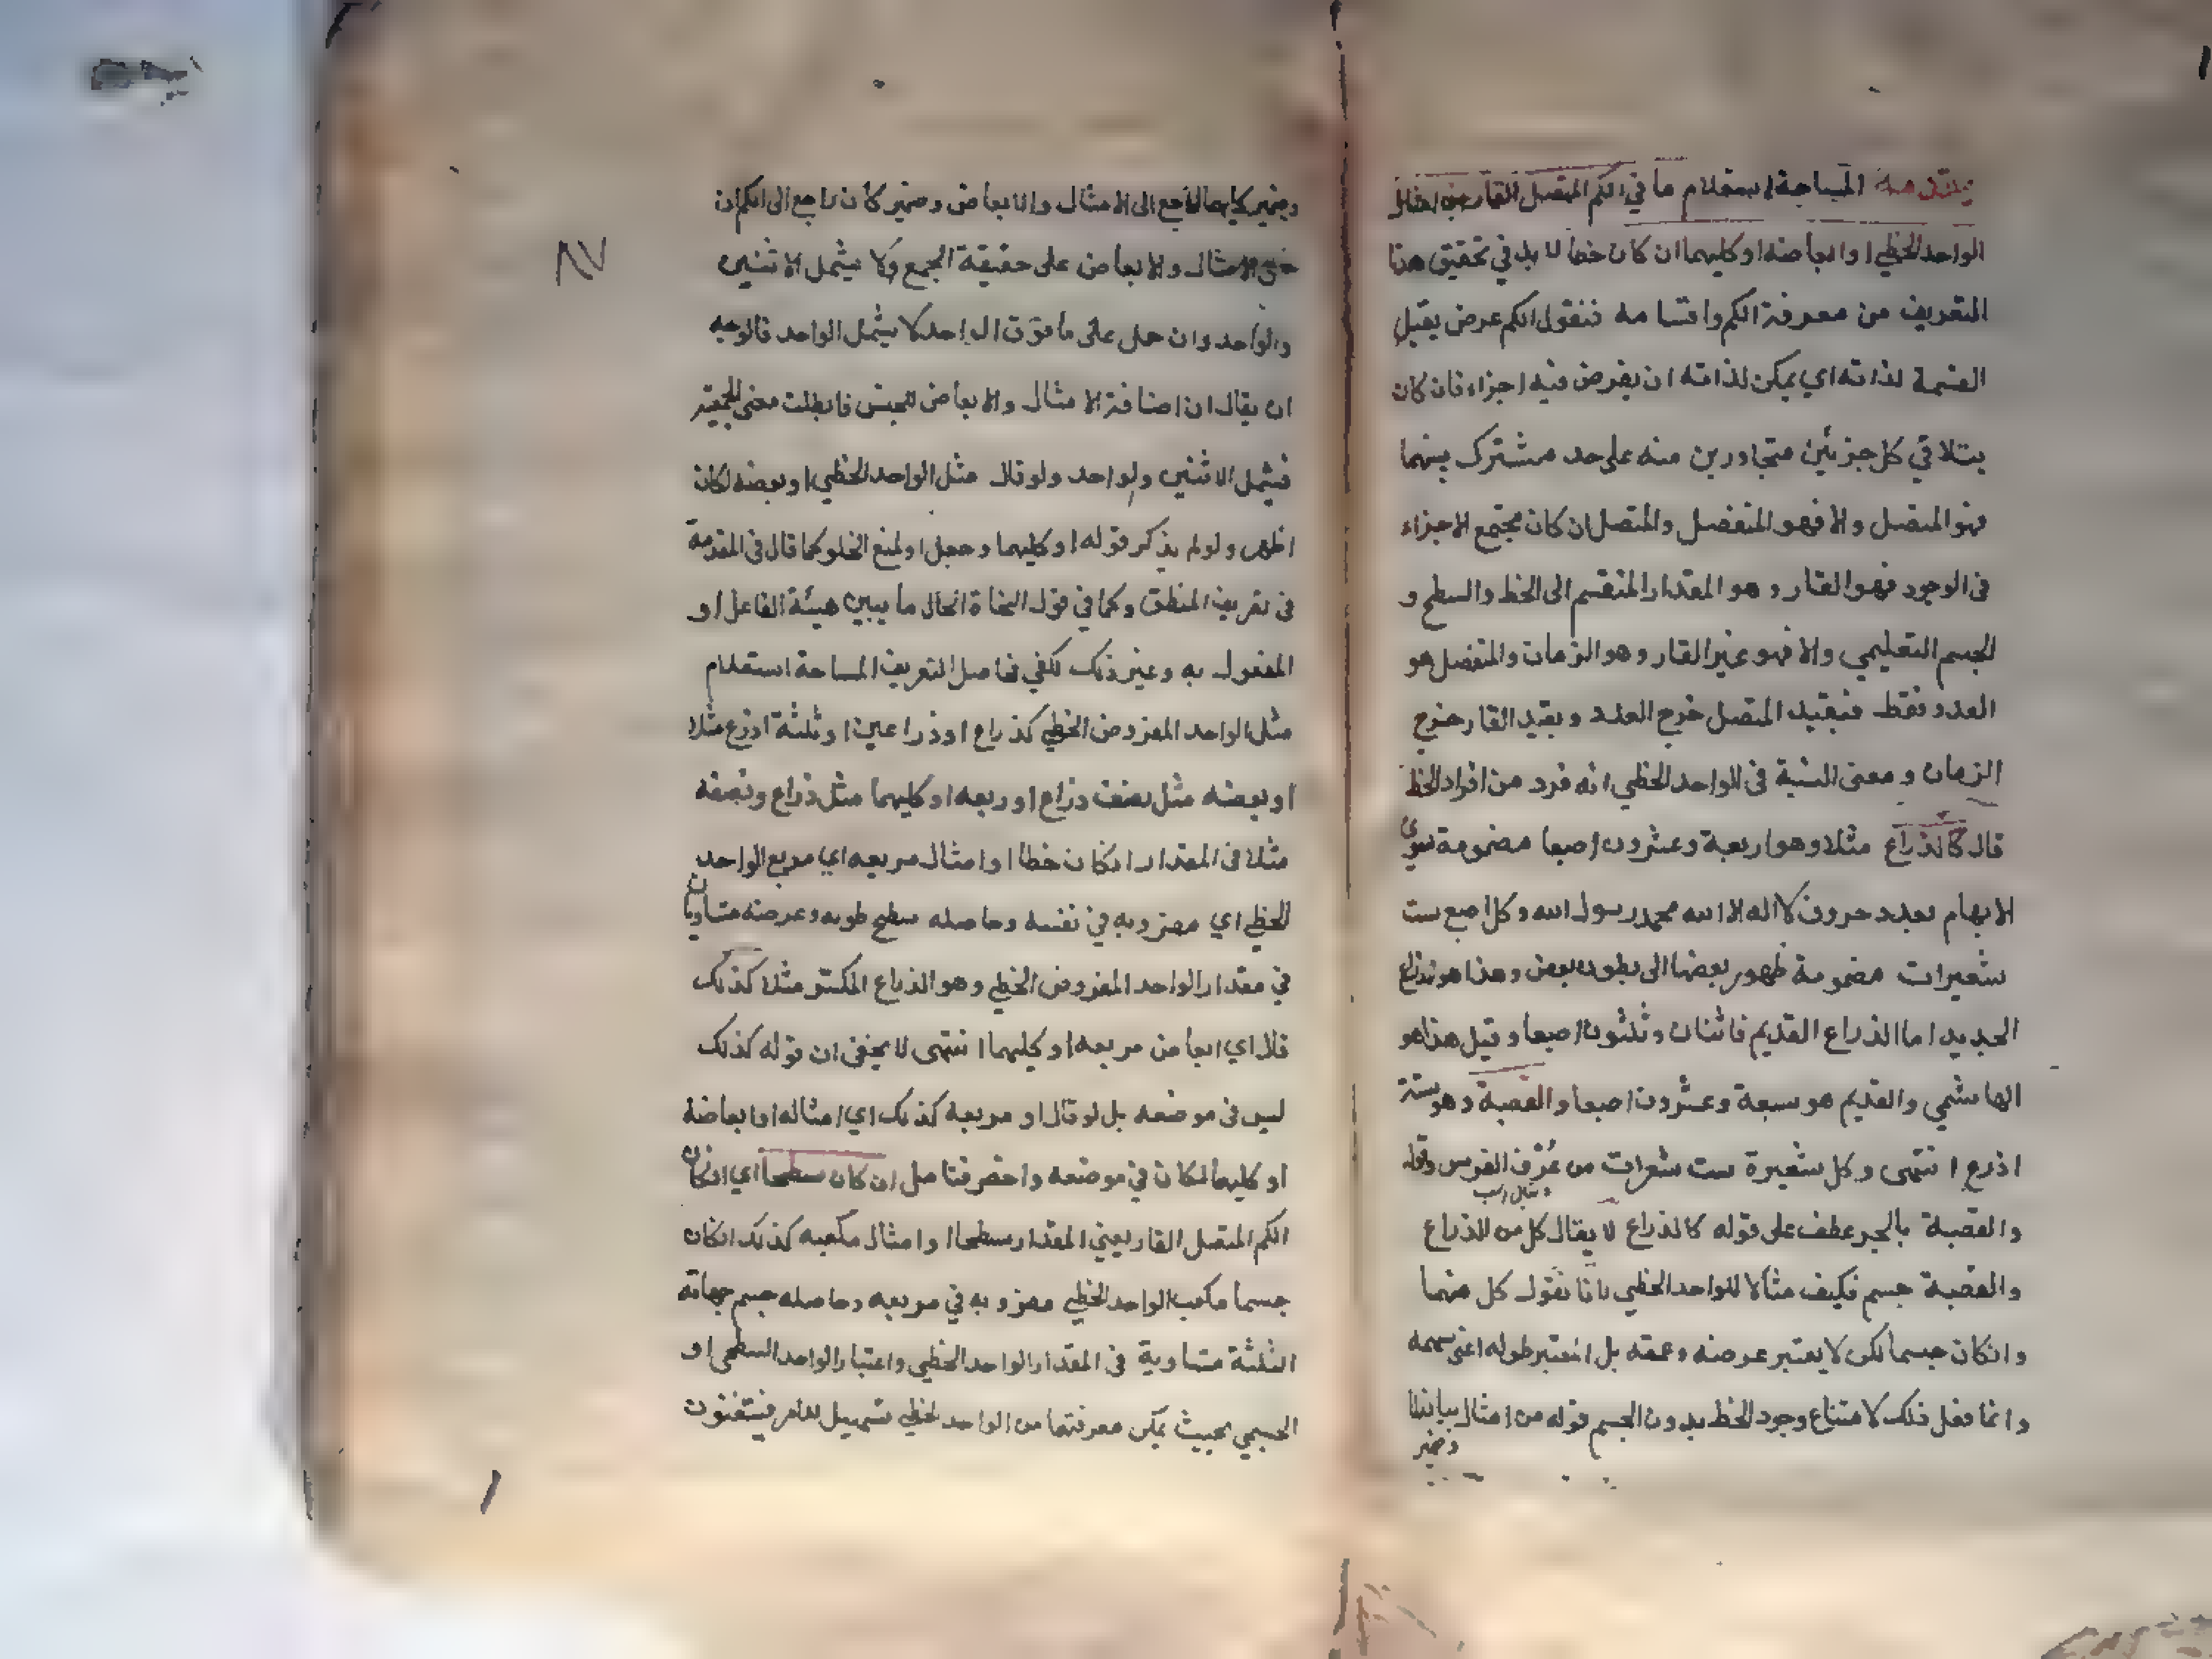 مقدمة المساحة استعلام ما في الكم المتصل القار من امثال
الواحد الخطي او ابعاضه او كليهما ان كان خطا لا بد في تحقيق هذا
التعريف من معرفة الكم واقسامه فنقول الكم عرض يقبل
القسمة لذاته اي يمكن لذاته ان يفرض فيه اجزاء فان كان
يتلاقي كل جزئين متجاورين منه على حد مشترك بينهما
فهو المتصل والا فهو المنفصل والمتصل ان كان مجتمع الاجزاء
في الوجود فهو القار وهو المقدار المنقسم الى الخط والسطح و
الجسم التعليمي والا فهو غير القار وهو الزمان والمنفصل هو
العدد فقط فبقيد المتصل خرج العدد وبقيد القار خرج
الزمان ومعنى النسبة في الواحد الخطي انه فرد من افراد الخط
قال كالذراع مثلا وهو اربعة وعشرون اصبعا مضمومة سوى
الابهام بعدد حروف لا اله الا الله محمد رسول الله وكل اصبع ست
شعيرات مضمومة ظهور بعضها الى بطون بعض وهذا هو الذراع
الجديد اما الذراع القديم فاثنان وثلثون اصبعا وقيل هذا هو
الهاشمي والقديم هو سبعة وعشرون اصبعا والقصبة وهو ستة
اذرع انتهى وكل شعيرة ست شعرات من عرف الفرس وقوله
والقصبة بالجر عطف على قوله كالذراع لا يقال كل من الذراع
والقصبة جسم فكيف مثالا للواحد الخطي لانا نقول كل منهما
وانكان جسما لكن لا يعتبر عرضه وعمقه بل المعتبر طوله اعني سهمه
وانما فعل ذلك لامتناع وجود الخط بدون الجسم قوله من امثال بيان لما
وضمير
وضمير كليهما راجع الى الامثال والابعاض وضمير كان راجع الى الكم ان
حمل الامثال والابعاض على حقيقة الجمع لا يشمل الاثنين
والواحد وان حمل على ما فوق الواحد لا يشمل الواحد فالوجه
ان يقال ان اضافة الامثال والابعاض للجنس فابطلت معنى الجمعية
فيشمل الاثنين والواحد ولو قال مثل الواحد الخطي او بعضه لكان
اظهر ولو لم يذكر قوله او كليهما وجعل او لمنع الخلو كما قال في المقدمة
في تعريف المنطق وكما في قول النحاة الحال ما يبين هيئة الفاعل او
المفعول به وغير ذلك لكفى فحاصل التعريف المساحة استعلام
مثل الواحد المفروض الخطي كذراع او ذراعين او ثلثة اذرع مثلا
او بعضه مثل نصف ذراع او ربعه او كليهما مثل ذراع ونصفه
مثلا في المقدار انكان خطا او امثال مربعه اي مربع الواحد
الخطي اي مضروبه في نفسه وحاصله سطح طوله وعرضه متساويان
في مقدار الواحد المفروض الخطي وهو الذراع المكسر مثلا كذلك
قال اي ابعاض مربعه او كليهما انتهى لا يخفى ان قوله كذلك
ليس في موضعه بل لو قال او مربعه كذلك اي امثاله او ابعاضه
او كليهما لكان في موضعه واخصر فتامل ان كان سطحا اي انكان
الكم المتصل القار يعني المقدار سطحا او امثال مكعبه كذلك انكان
جسما مكعب الواحد الخطي مضروبه في مربعه وحاصله جسم جهاته
الثلثة متساوية في المقدار الواحد الخطي واعتبار الواحد السطحي او
الجسمي بحيث يمكن معرفتها من الواحد الخطي تسهيل للامر فيستغنون